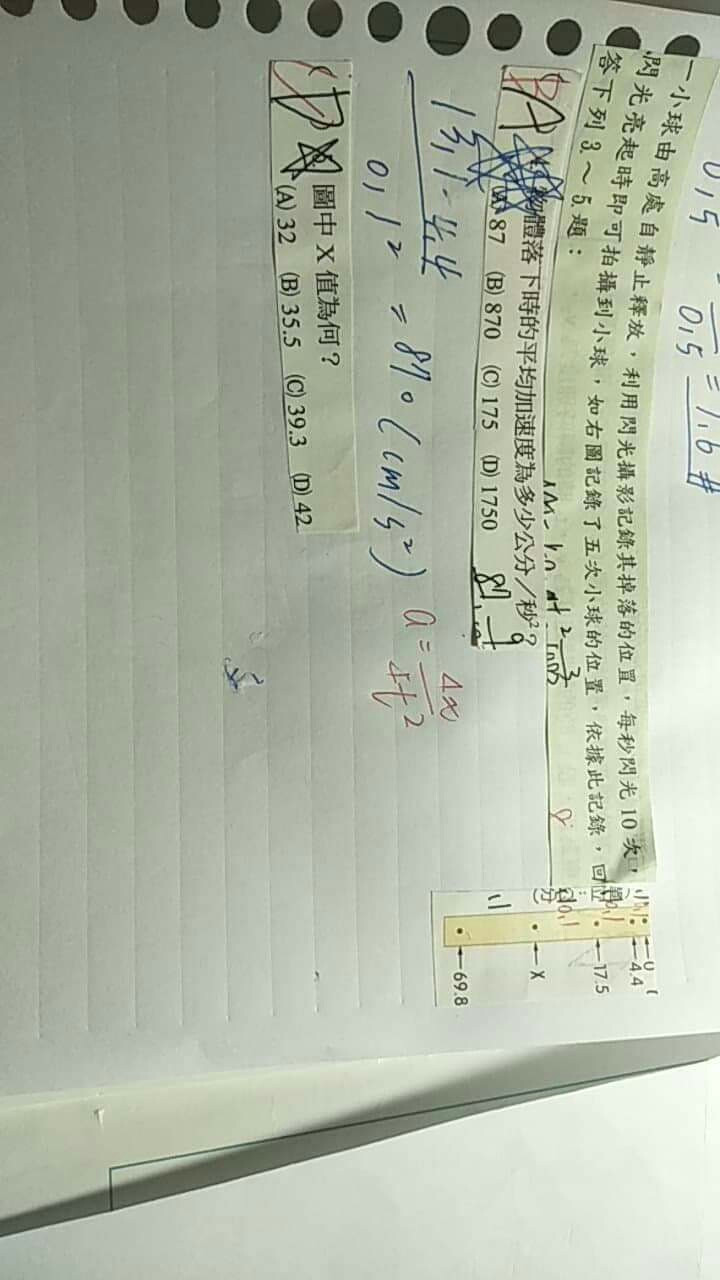 0,5 = 0,5 = 1,6 #
一小球由高處自靜止釋放，利用閃光攝影記錄其掉落的位置，每秒閃光10次，
閃光亮起時即可拍攝到小球，如右圖記錄了五次小球的位置，依據此記錄，回
答下列3.～5.題：
物體落下時的平均加速度為多少公分／秒²？
(A) 87 (B) 870 (C) 175 (D) 1750
13,1-4,4
0,1² = 870 (cm/s²)
a = Δx
Δt²
圖中 X 值為何？
(A) 32 (B) 35.5 (C) 39.3 (D) 42
0
4.4
17.5
X
69.8